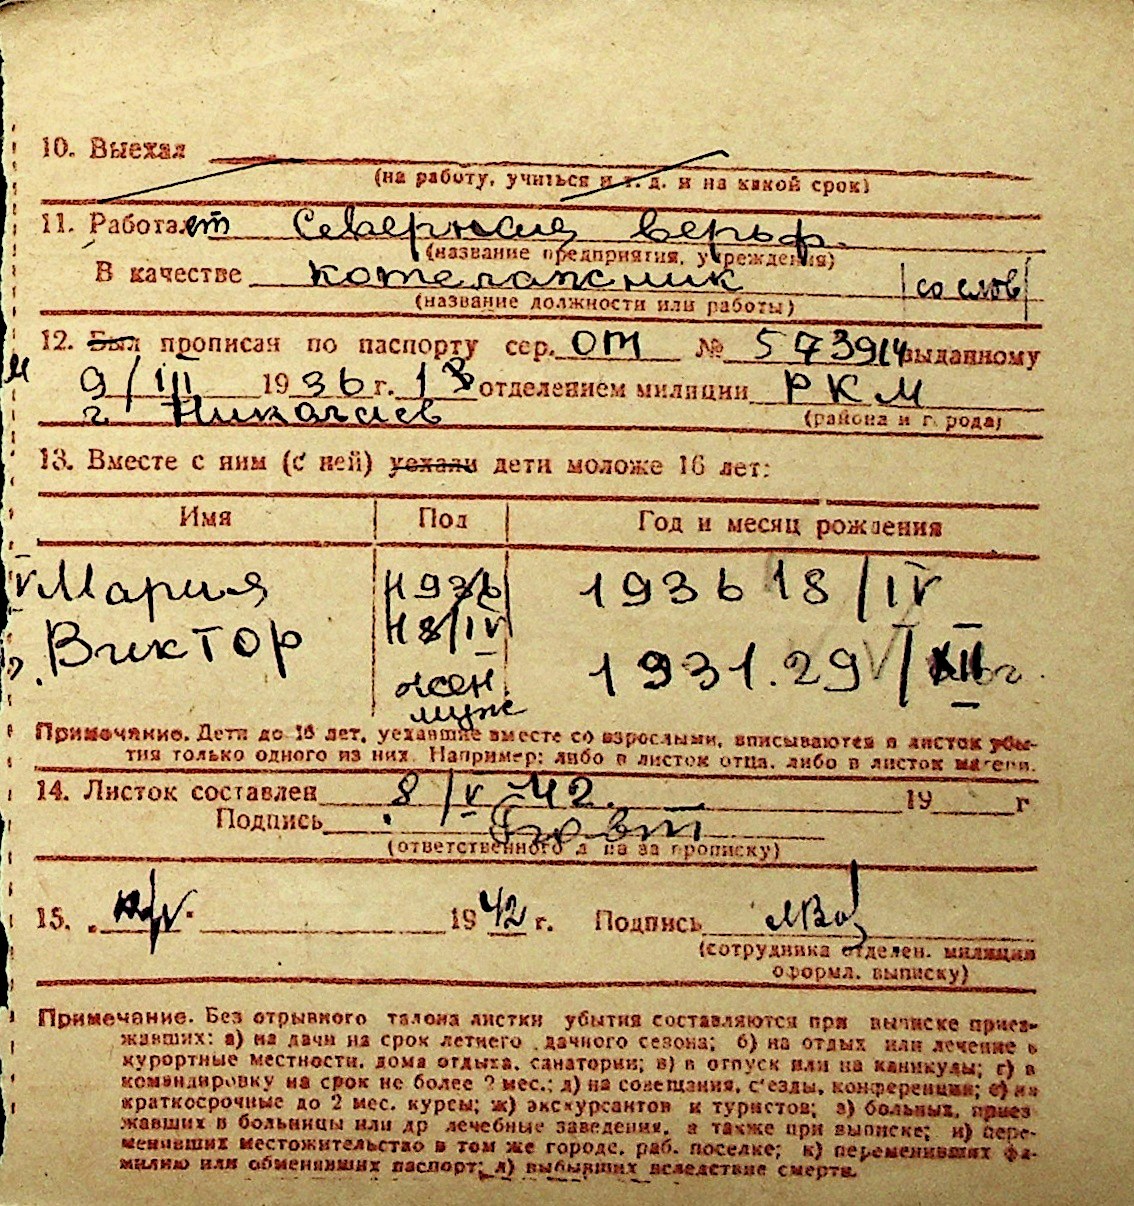 10. Выехал
(на работу, учиться и т. д. и на какой срок)
11. Работает Северная верф.
(название предприятия, учреждения)
В качестве котельщик со слов
(название должности или работы)
12. Был прописан по паспорту сер. ОТ № 573914 выданному
9/III 1936 г. 13 отделением милиции РКМ
г. Николаев (района и города)
13. Вместе с ним (с ней) уехали дети моложе 16 лет:
Имя Пол Год и месяц рождения
Мария 1936 18/IV
Виктор 1931. 29/XII
жен
муж
Примечание. Дети до 16 лет, уехавшие вместе со взрослыми, вписываются в листок убы-
тия только одного из них. Например: либо в листок отца, либо в листок матери.
14. Листок составлен 8/V 42. 19 г
Подпись
(ответственного л на за прописку)
15. 1942 г. Подпись
(сотрудника отделен. милиции
оформл. выписку)
Примечание. Без отрывного талона листки убытия составляются при выписке приез-
жавших: а) на дачи на срок летнего дачного сезона; б) на отдых или лечение в
курортные местности, дома отдыха, санатории; в) в отпуск или на каникулы; г) в
командировку на срок не более 2 мес.; д) на совещания, с'езды, конференции; е) на
краткосрочные до 2 мес. курсы; ж) экскурсантов и туристов; з) больных, приез
жавших в больницы или др лечебные заведения, а также при выписке; и) пере-
менивших местожительство в том же городе, раб. поселке; к) переменивших фа-
милию или обменявших паспорт; л) выбывших вследствие смерти.